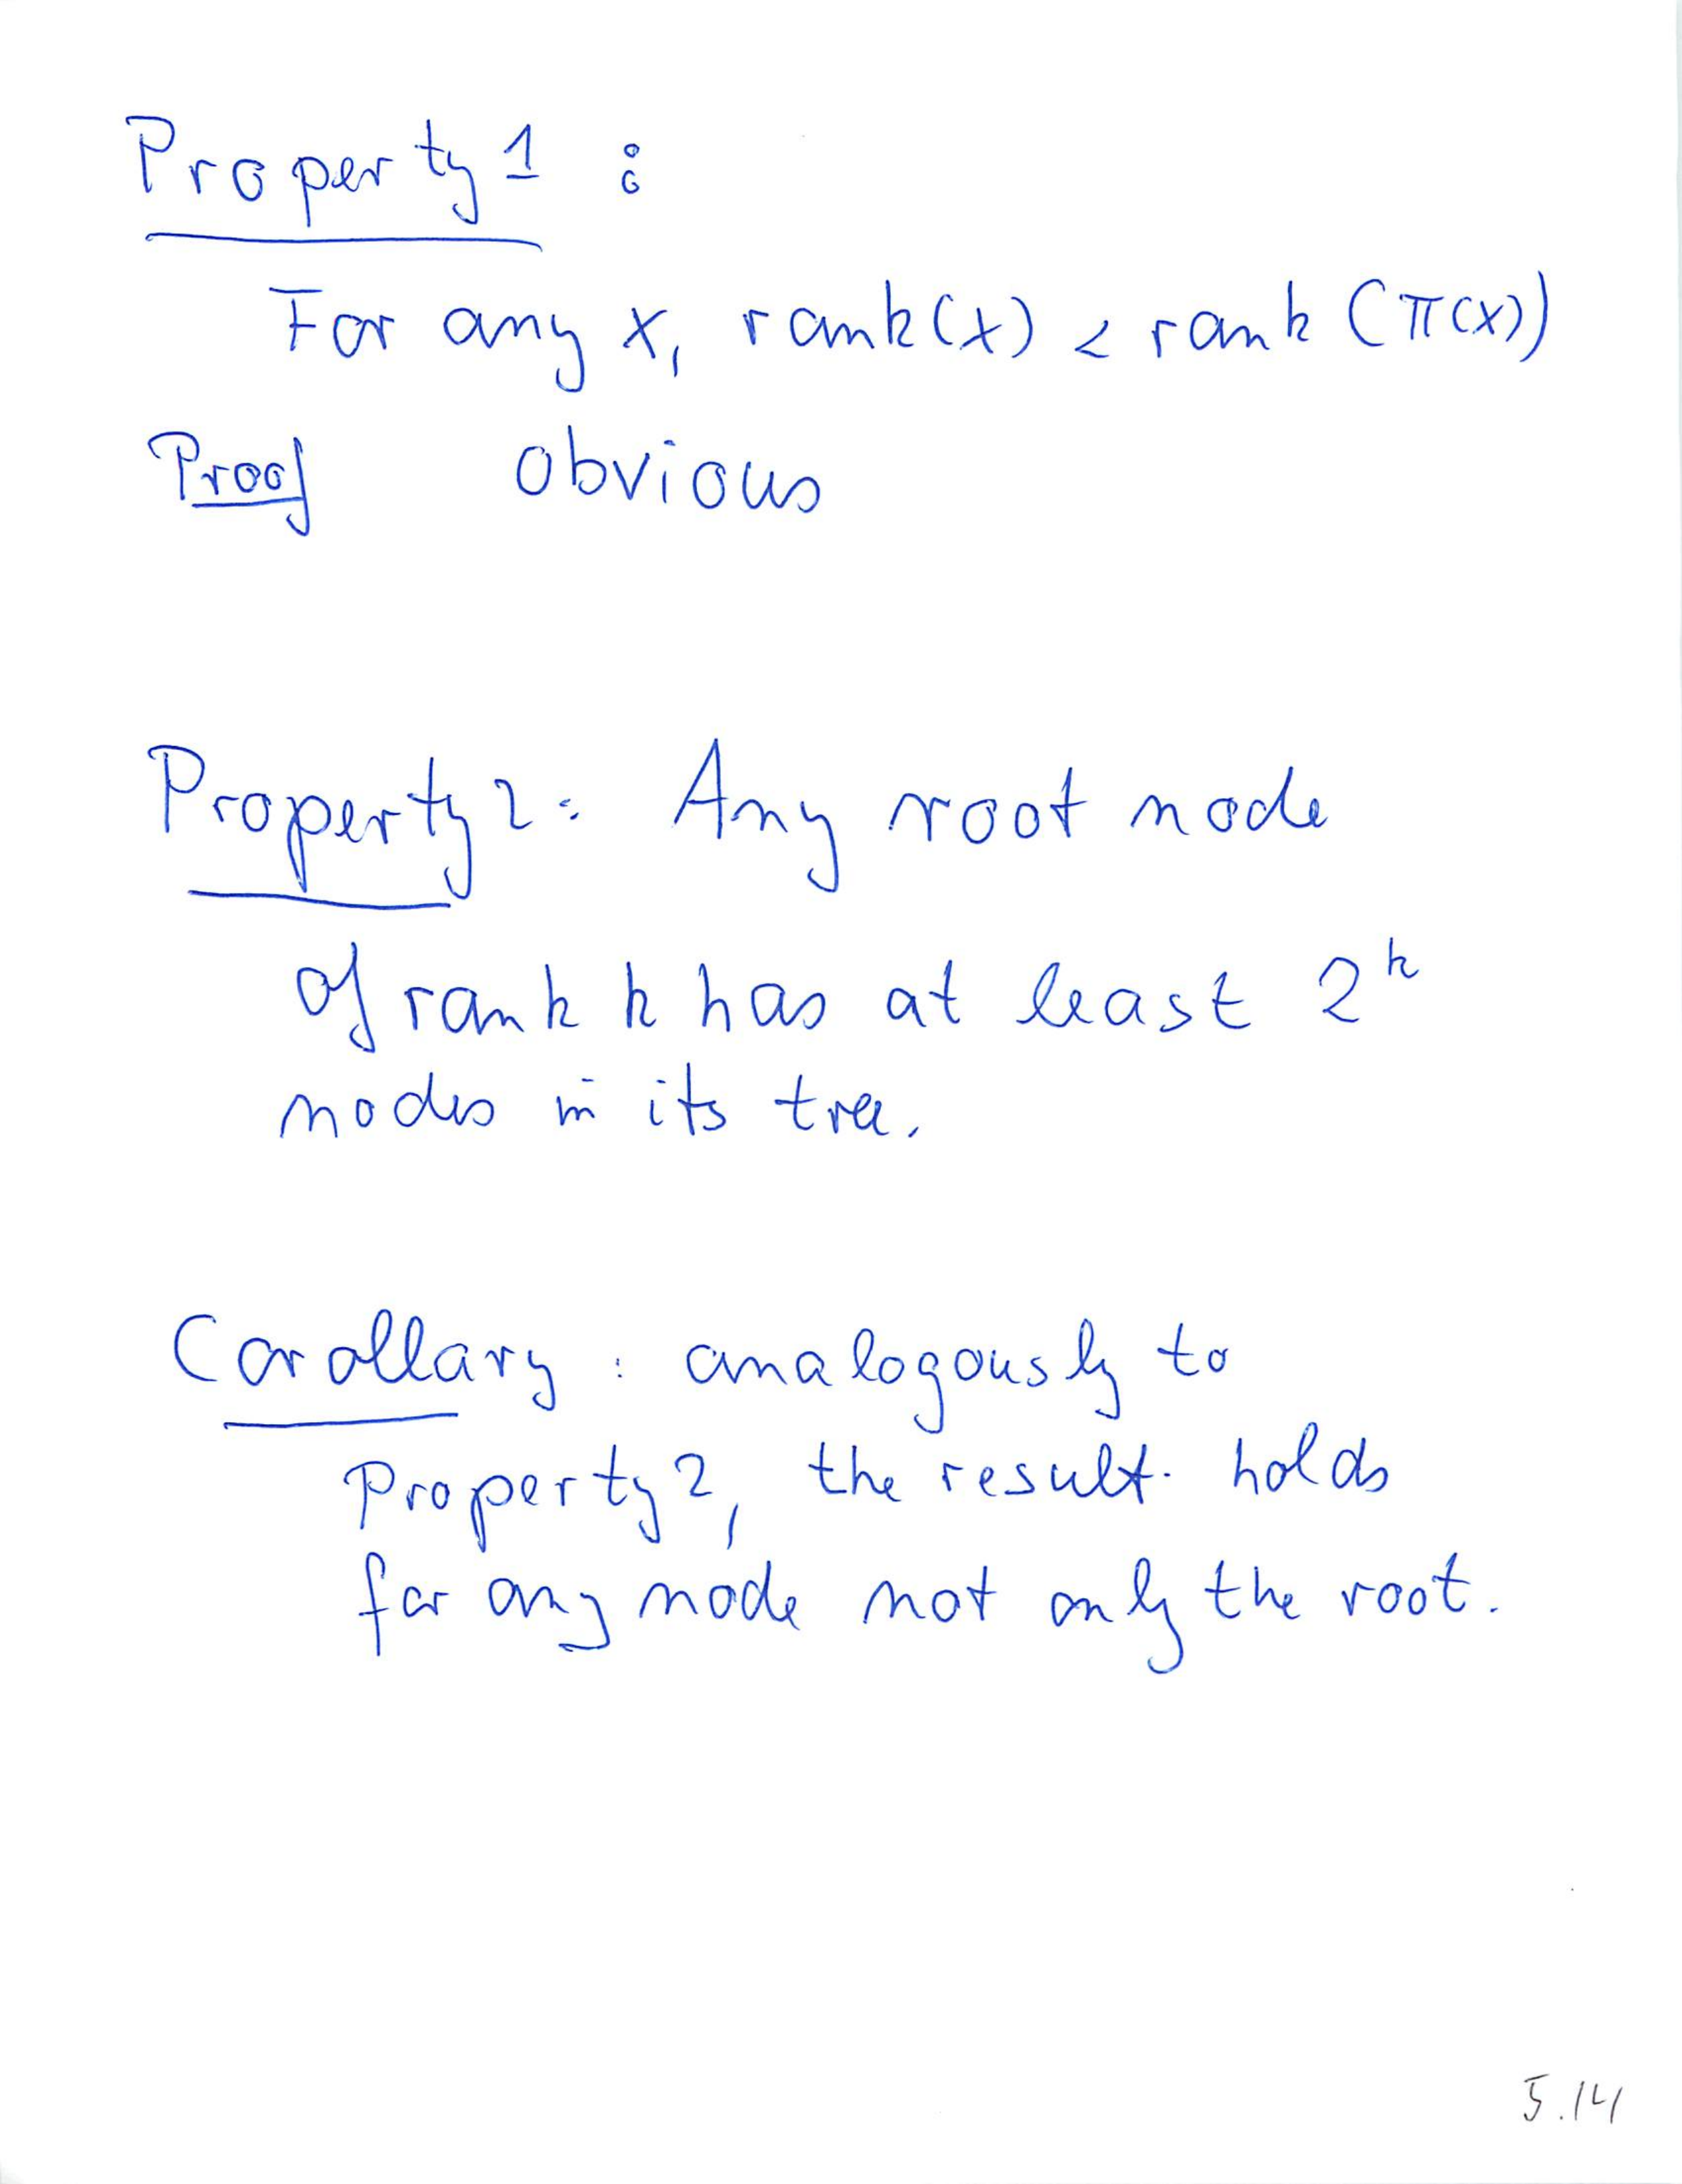 Property 1 :
For any x, rank(x) < rank (π(x))
Proof obvious
Property 2: Any root node
of rank k has at least 2^k
nodes in its tree.
Corollary: analogously to
Property 2, the result holds
for any node not only the root.
5.14